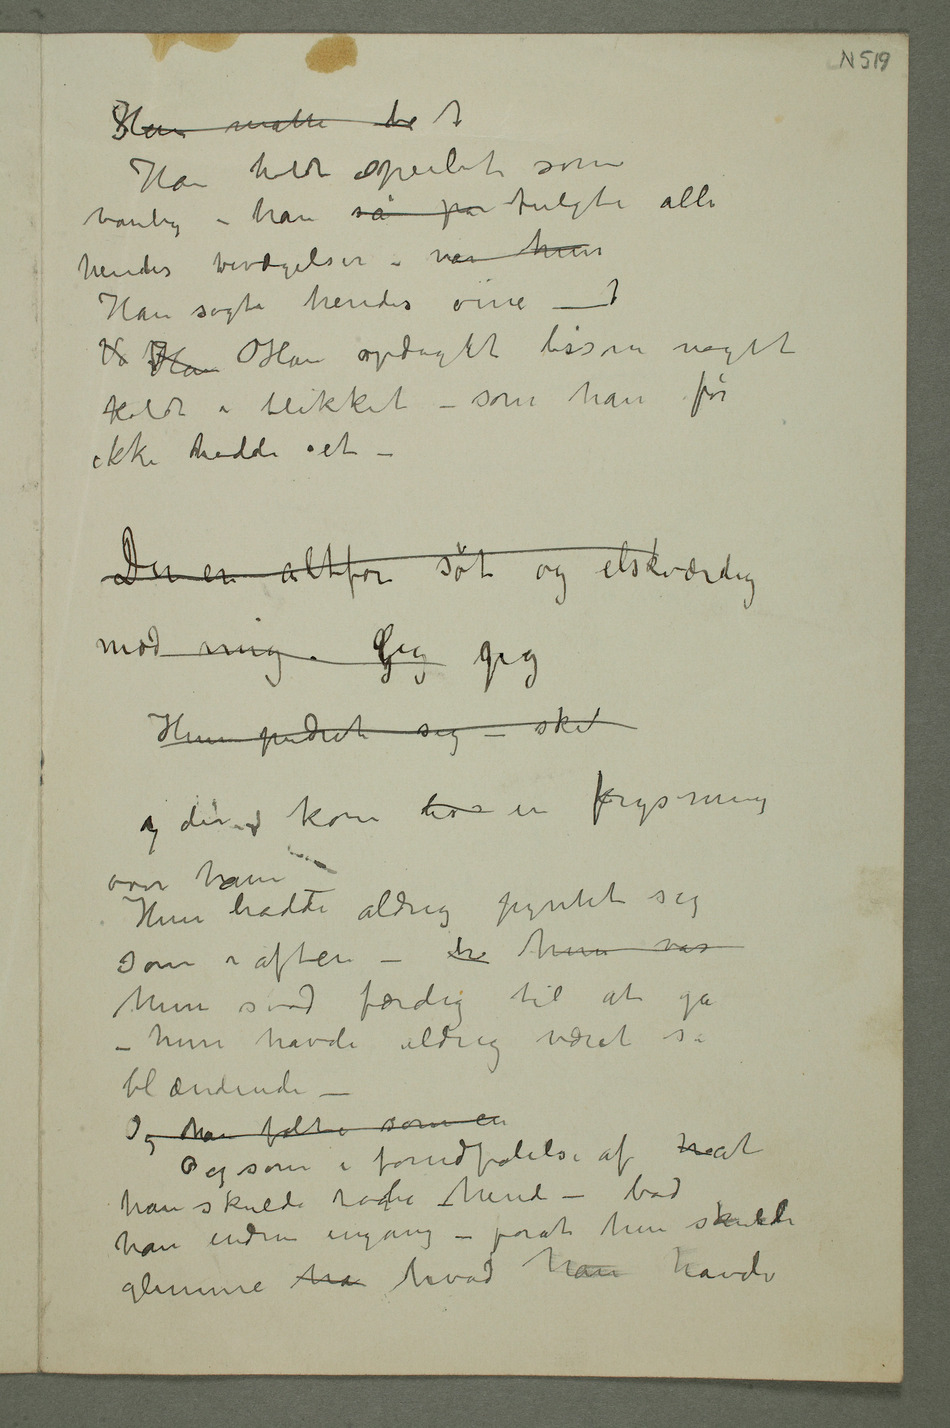 N 519
Han måtte be
Han holdt speilet som
vanlig – han så på fulgte alle
hendes bevægelser – var hun
Han søgte hendes øine –
Han Han opdaget lissom noget
koldt i blikket – som han før
ikke hadde set –
De er altfor søt og elskværdig
mod mig. Jeg jeg
Hun pudret sig – ske
og der kom en frysning
over ham –
Hun hadde aldrig pyntet sig
som iaften – hun var
Hun stod færdig til at gå
– hun havde aldrig været så
blændende –
Og han følte som en
Og som i forudfølelse af at
han skulde tabe hende – bad
han endnu engang – forat hun skulde
glemme ha hvad han havde